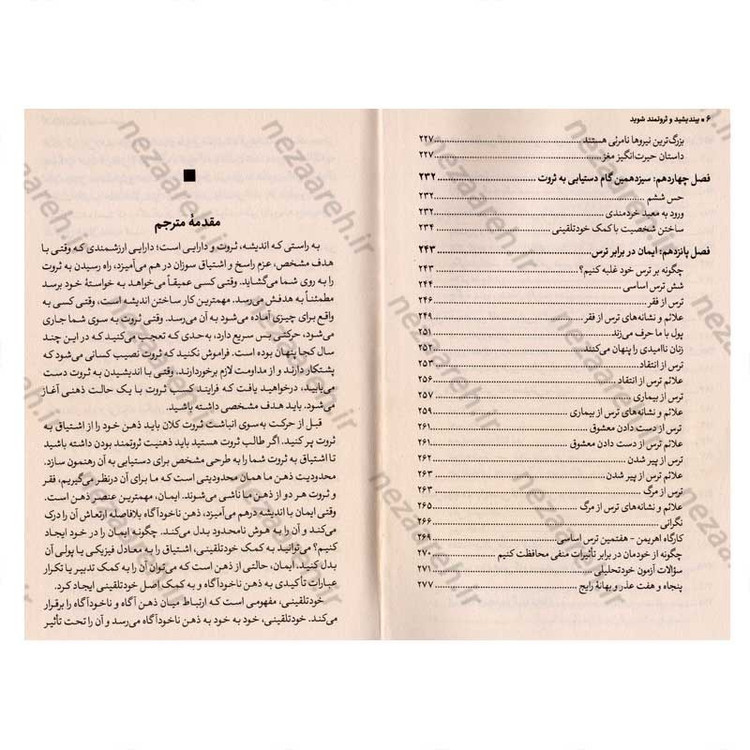 ۶ ■ بیندیشید و ثروتمند شوید
بزرگ‌ترین نیروها نامرئی هستند ........ ۲۲۷
داستان حیرت‌انگیز مغز ........ ۲۲۷
فصل چهاردهم: سیزدهمین گام دستیابی به ثروت ........ ۲۳۲
حس ششم ........ ۲۳۲
ورود به معبد خردمندی ........ ۲۳۲
ساختن شخصیت با کمک خودتلقینی ........ ۲۳۴
فصل پانزدهم: ایمان در برابر ترس ........ ۲۴۳
چگونه بر ترس خود غلبه کنیم؟ ........ ۲۴۳
شش ترس اساسی ........ ۲۴۴
ترس از فقر ........ ۲۴۶
علائم و نشانه‌های ترس از فقر ........ ۲۴۹
پول با ما حرف می‌زند ........ ۲۵۱
زنان ناامیدی را پنهان می‌کنند ........ ۲۵۲
ترس از انتقاد ........ ۲۵۳
علائم ترس از انتقاد ........ ۲۵۶
ترس از بیماری ........ ۲۵۷
علائم و نشانه‌های ترس از بیماری ........ ۲۵۹
ترس از دست دادن معشوق ........ ۲۶۱
علائم ترس از دست دادن معشوق ........ ۲۶۱
ترس از پیر شدن ........ ۲۶۲
علائم ترس از پیر شدن ........ ۲۶۳
ترس از مرگ ........ ۲۶۳
علائم و نشانه‌های ترس از مرگ ........ ۲۶۵
نگرانی ........ ۲۶۶
کارگاه اهریمن - هفتمین ترس اساسی ........ ۲۶۹
چگونه از خودمان در برابر تأثیرات منفی محافظت کنیم ........ ۲۷۰
سؤالات آزمون خودتحلیلی ........ ۲۷۱
پنجاه و هفت عذر و بهانهٔ رایج ........ ۲۷۷
مقدمهٔ مترجم
به راستی که اندیشه، ثروت و دارایی است؛ دارایی ارزشمندی که وقتی با
هدف مشخص، عزم راسخ و اشتیاق سوزان در هم می‌آمیزد، راه رسیدن به ثروت
را به روی شما می‌گشاید. وقتی کسی عمیقاً می‌خواهد به خواستهٔ خود برسد
مطمئناً به هدفش می‌رسد. مهمترین کار ساختن اندیشه است، وقتی کسی به
واقع برای چیزی آماده می‌شود به آن می‌رسد. وقتی ثروت به سوی شما جاری
می‌شود، حرکتی بس سریع دارد، به‌حدی که تعجب می‌کنید که در این چند
سال کجا پنهان بوده است. فراموش نکنید که ثروت نصیب کسانی می‌شود که
پشتکار دارند و از مداومت لازم برخوردارند. وقتی با اندیشیدن به ثروت دست
می‌یابید، درخواهید یافت که فرایند کسب ثروت با یک حالت ذهنی آغاز
می‌شود. باید هدف مشخصی داشته باشید.
قبل از حرکت به‌سوی انباشت ثروت کلان باید ذهن خود را از اشتیاق به
ثروت پر کنید. اگر طالب ثروت هستید باید ذهنیت ثروتمند بودن داشته باشید
تا اشتیاق به ثروت شما را به طرحی مشخص برای دستیابی به آن رهنمون سازد.
محدودیت ذهن ما همان محدودیتی است که ما برای آن درنظر می‌گیریم، فقر
و ثروت هر دو از ذهن ما ناشی می‌شوند. ایمان، مهمترین عنصر ذهن است.
وقتی ایمان با اندیشه درهم می‌آمیزد، ذهن ناخودآگاه بلافاصله ارتعاش آن را درک
می‌کند و آن را به هوش نامحدود بدل می‌کند. چگونه ایمان را در خود ایجاد
کنیم؟ می‌توانید به کمک خودتلقینی، اشتیاق را به معادل فیزیکی یا پولی آن
بدل کنید. ایمان، حالتی از ذهن است که می‌توان آن را به کمک تدبیر یا تکرار
عبارات تأکیدی به ذهن ناخودآگاه و به کمک اصل خودتلقینی ایجاد کرد.
خودتلقینی، مفهومی است که ارتباط میان ذهن آگاه و ناخودآگاه را برقرار
می‌کند. خودتلقینی، خود به خود به ذهن ناخودآگاه می‌رسد و آن را تحت تأثیر
nezaareh.ir